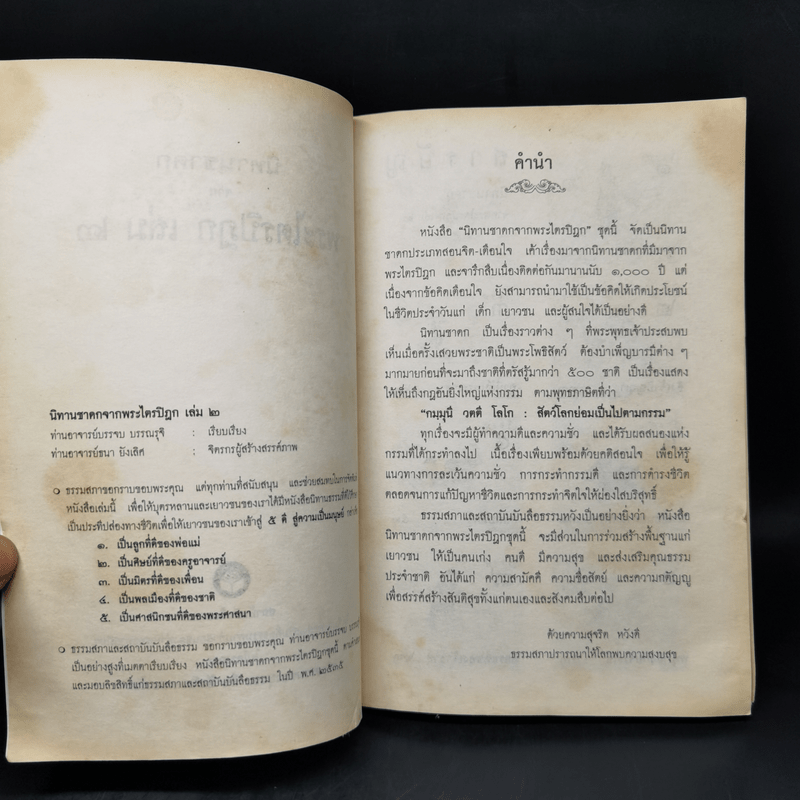 นิทานชาดกจากพระไตรปิฎก เล่ม ๒
ท่านอาจารย์บรรจบ บรรณรุจิ : เรียบเรียง
ท่านอาจารย์ธนา ยังเลิศ : จิตรกรผู้สร้างสรรค์ภาพ
ธรรมสภาขอกราบขอบพระคุณ แด่ทุกท่านที่สนับสนุน และช่วยสมทบในการจัดพิมพ์
หนังสือเล่มนี้ เพื่อให้บุตรหลานและเยาวชนของเราได้มีหนังสือนิทานธรรมที่ดี
เป็นประทีปส่องทางชีวิตเพื่อให้เยาวชนของเราเข้าสู่ ๕ ดี สู่ความเป็นมนุษย์
๑. เป็นลูกที่ดีของพ่อแม่
๒. เป็นศิษย์ที่ดีของครูอาจารย์
๓. เป็นมิตรที่ดีของเพื่อน
๔. เป็นพลเมืองที่ดีของชาติ
๕. เป็นศาสนิกชนที่ดีของพระศาสนา
ธรรมสภาและสถาบันบันลือธรรม ขอกราบขอบพระคุณ ท่านอาจารย์บรรจบ
เป็นอย่างสูงที่เมตตาเรียบเรียง หนังสือนิทานชาดกจากพระไตรปิฎกชุดนี้
และมอบลิขสิทธิ์แก่ธรรมสภาและสถาบันบันลือธรรม ในปี พ.ศ. ๒๕๓๕
คำนำ
หนังสือ "นิทานชาดกจากพระไตรปิฎก" ชุดนี้ จัดเป็นนิทาน
ชาดกประเภทสอนจิต-เตือนใจ เค้าเรื่องมาจากนิทานชาดกที่มีมาจาก
พระไตรปิฎก และจารึกสืบเนื่องติดต่อกันมานานนับ ๑,๐๐๐ ปี แต่
เนื่องจากข้อคิดเตือนใจ ยังสามารถนำมาใช้เป็นข้อคิดให้เกิดประโยชน์
ในชีวิตประจำวันแก่ เด็ก เยาวชน และผู้สนใจได้เป็นอย่างดี
นิทานชาดก เป็นเรื่องราวต่าง ๆ ที่พระพุทธเจ้าประสบพบ
เห็นเมื่อครั้งเสวยพระชาติเป็นพระโพธิสัตว์ ต้องบำเพ็ญบารมีต่าง ๆ
มากมายก่อนที่จะมาถึงชาติที่ตรัสรู้มากว่า ๕๐๐ ชาติ เป็นเรื่องแสดง
ให้เห็นถึงกฎอันยิ่งใหญ่แห่งกรรม ตามพุทธภาษิตที่ว่า
"กมฺมุนี วตตี โลโก : สัตว์โลกย่อมเป็นไปตามกรรม"
ทุกเรื่องจะมีผู้ทำความดีและความชั่ว และได้รับผลสนองแห่ง
กรรมที่ได้กระทำลงไป เนื้อเรื่องเพียบพร้อมด้วยคติสอนใจ เพื่อให้รู้
แนวทางการละเว้นความชั่ว การกระทำกรรมดี และการดำรงชีวิต
ตลอดจนการแก้ปัญหาชีวิตและการกระทำจิตใจให้ผ่องใสบริสุทธิ์
ธรรมสภาและสถาบันบันลือธรรมหวังเป็นอย่างยิ่งว่า หนังสือ
นิทานชาดกจากพระไตรปิฎกชุดนี้ จะมีส่วนในการร่วมสร้างพื้นฐานแก่
เยาวชน ให้เป็นคนเก่ง คนดี มีความสุข และส่งเสริมคุณธรรม
ประจำชาติ อันได้แก่ ความสามัคคี ความซื่อสัตย์ และความกตัญญู
เพื่อสรรค์สร้างสันติสุขทั้งแก่ตนเองและสังคมสืบต่อไป
ด้วยความสุจริต หวังดี
ธรรมสภาปรารถนาให้โลกพบความสงบสุข